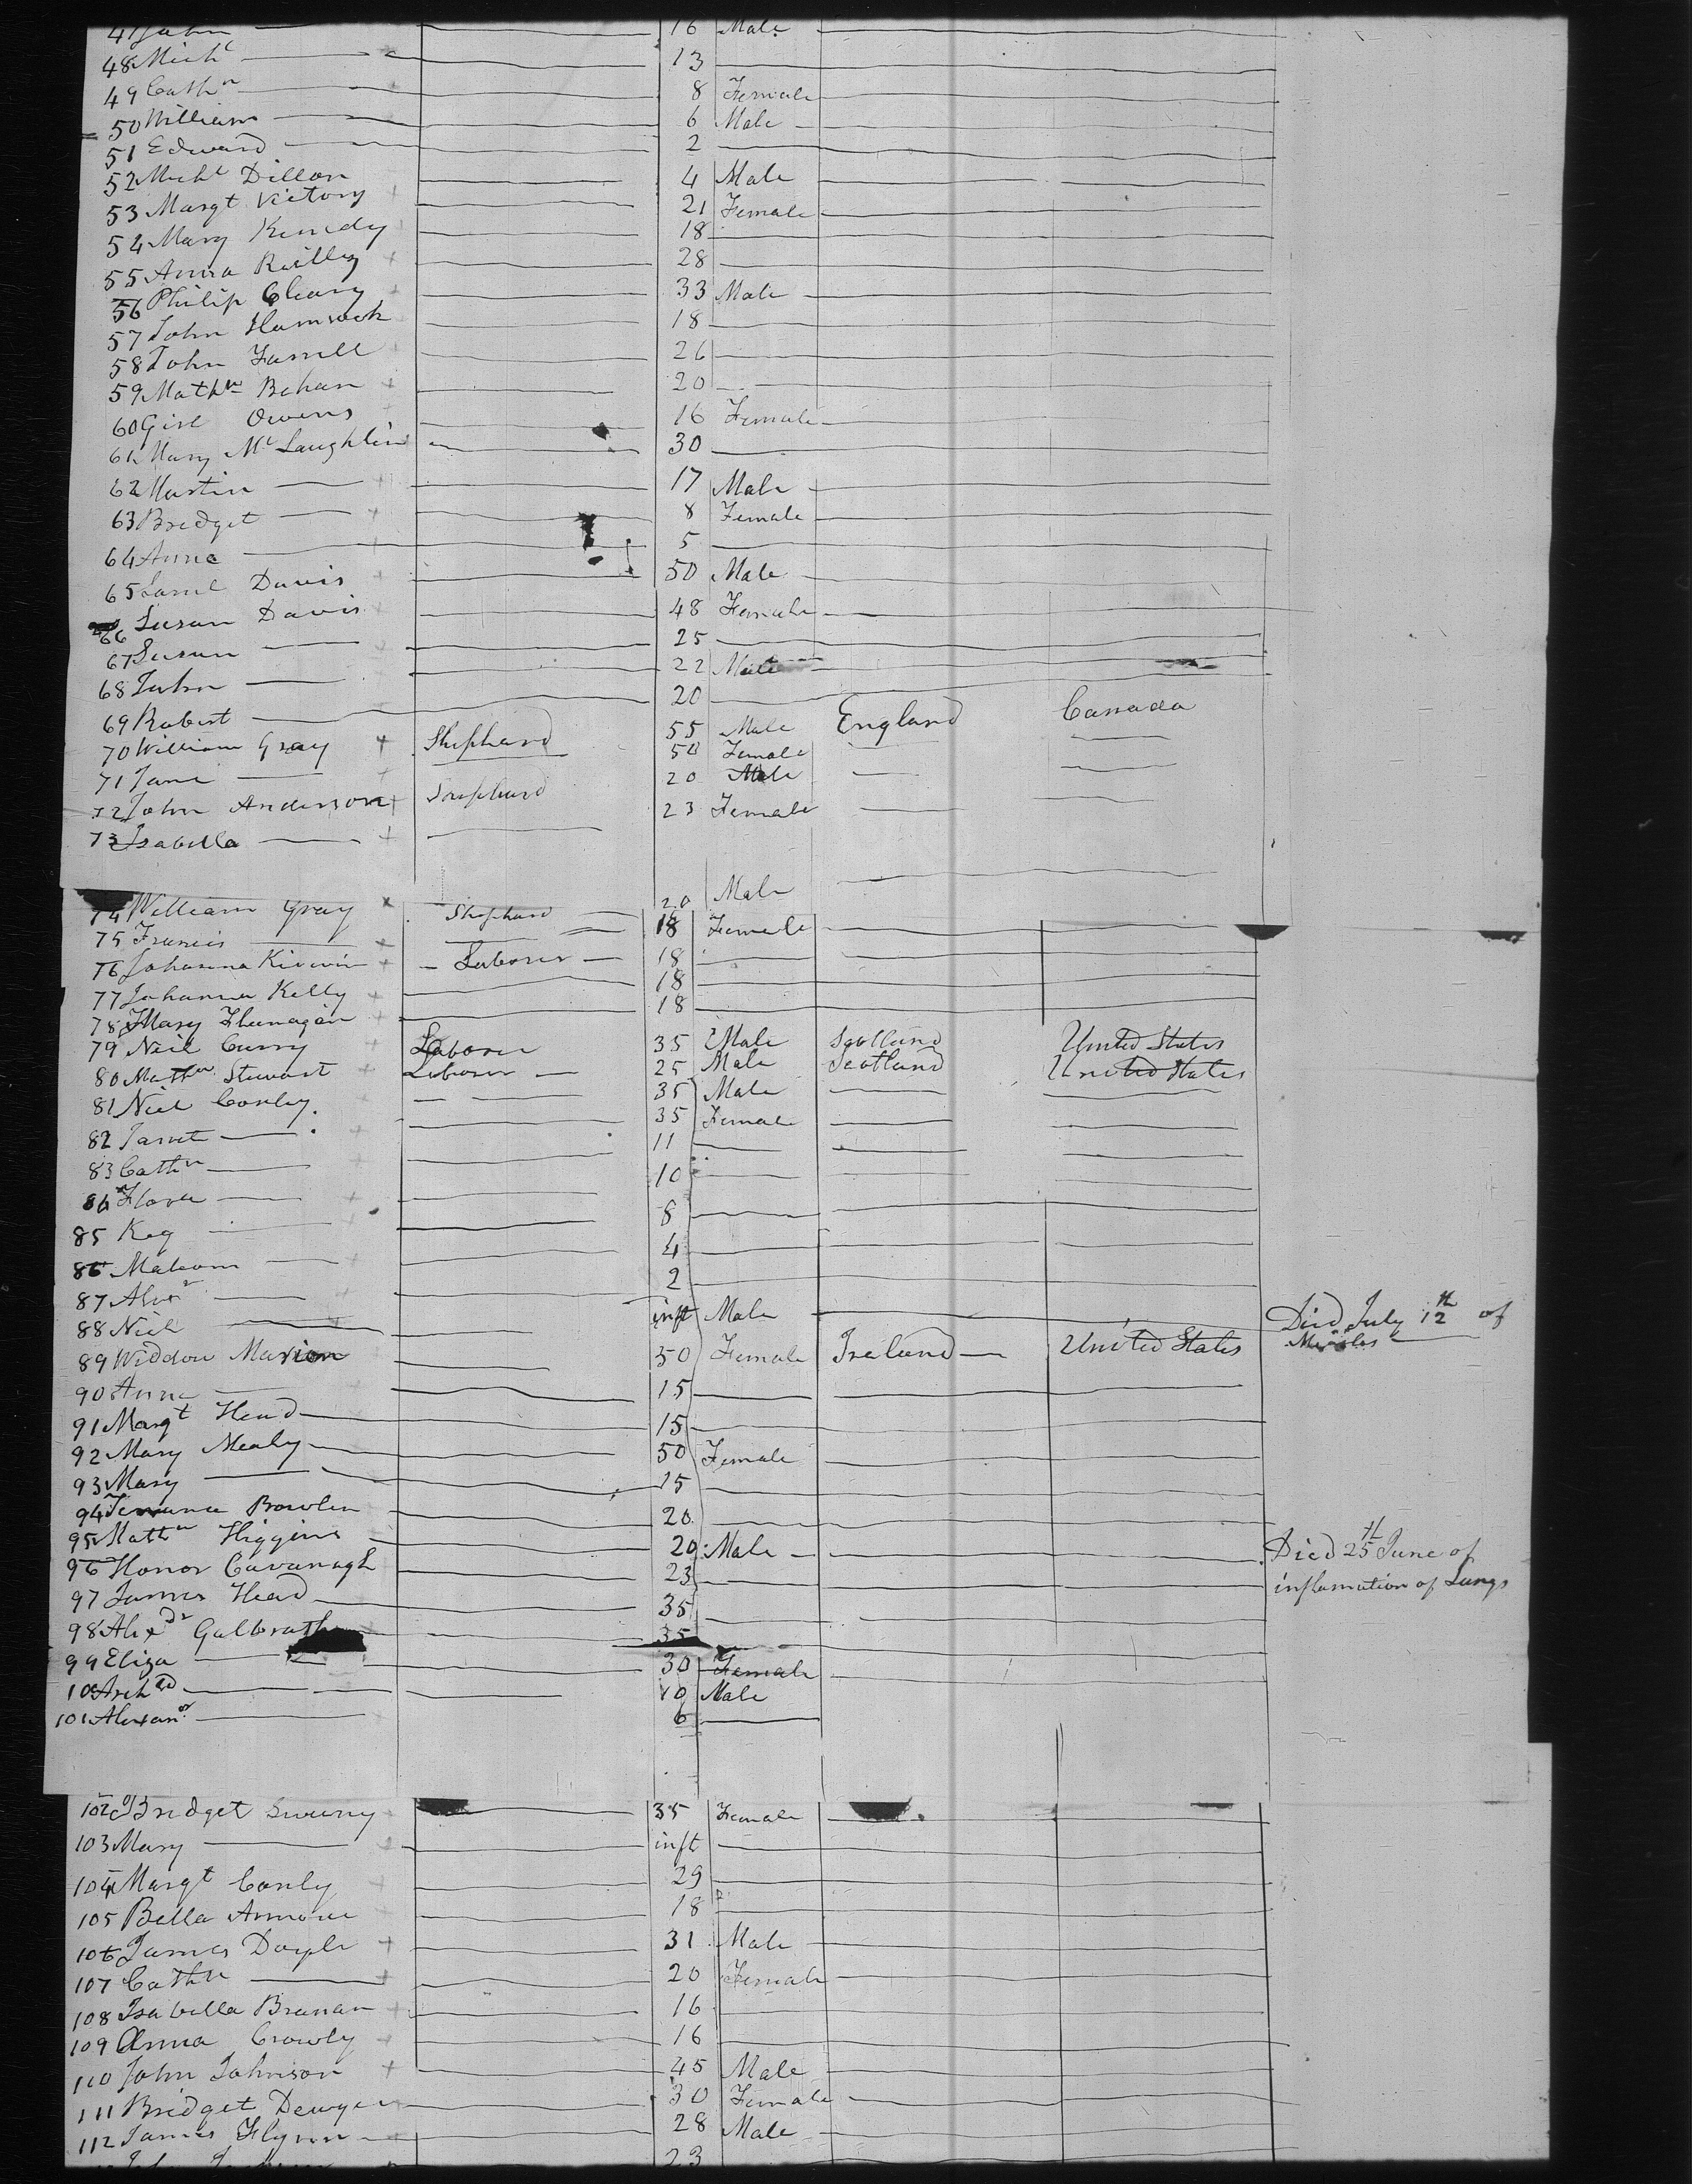 47 John 16 Male
48 Michl 13
49 Cathn 8 Female
50 William 6 Male
51 Edward 2
52 Michl Dillon 4 Male
53 Margt Victory 21 Female
54 Mary Kennedy 18
55 Anna Reilly 28
56 Philip Cleary 33 Male
57 John Hamrock 18
58 John Farrell 26
59 Mathw Behan 20
60 Girl Owens 16 Female
61 Mary McLaughlin 30
62 Martin 17 Male
63 Bridget 8 Female
64 Anne 5
65 Saml Davis 50 Male
66 Susan Davis 48 Female
67 Susan 25
68 John 22 Male
69 Robert 20
70 William Gray Shephard 55 Male England Canada
71 Jane 50 Female
72 John Anderson Shephard 20 Male
73 Isabella 23 Female
74 William Gray Shephard 20 Male
75 Francis 18 Female
76 Johanna Kirwin Laborer 18
77 Johanna Kelly 18
78 Mary Flanagan 18
79 Neil Curry Laborer 35 Male Scotland United States
80 Mathw Stewart Laborer 25 Male Scotland United States
81 Niel Conley 35 Male
82 Janet 35 Female
83 Cathn 11
84 Flora 10
85 Keg 8
86 Malcom 4
87 Alexr 2
88 Niel inft Male Died July 12th of Measles
89 Widdow Marion 50 Female Ireland United States
90 Anne 15
91 Margt Head 15
92 Mary Mealy 50 Female
93 Mary 15
94 Bowlen 20
95 Matthw Higgins 20 Male
96 Honor Cavanagh 23 Died 25th June of inflamation of Lungs
97 James Head 35
98 Alexdr Galbrath 35
99 Eliza 30 Female
100 Archd 10 Male
101 Alexanr 6
102 Bridget Sweeny 35 Female
103 Mary inft
104 Margt Conly 29
105 Bella 18
106 James Doyle 31 Male
107 Cathn 20 Female
108 Isabella Branan 16
109 Anna Crowly 16
110 John Johnson 45 Male
111 Bridget Dewyer 30 Female
112 James Flynn 28 Male
23